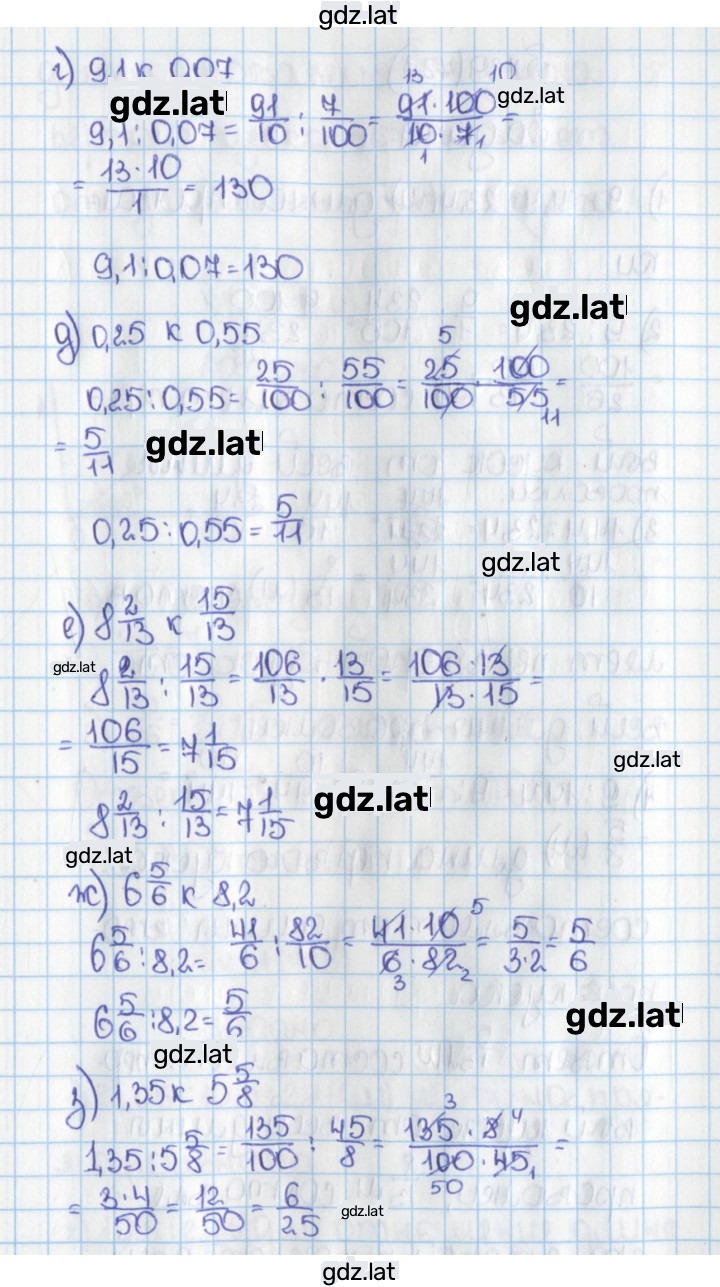 gdz.lat
г) 9,1 к 0,07
gdz.lat
9,1 : 0,07 = 91/10 : 7/100 = 91·100/10·7 = 13 10 1 1 gdz.lat
= 13·10/1 = 130
9,1 : 0,07 = 130
gdz.lat
д) 0,25 к 0,55
0,25 : 0,55 = 25/100 : 55/100 = 25/100 · 100/55 = 5 11
= 5/11 gdz.lat
0,25 : 0,55 = 5/11
gdz.lat
е) 8 2/13 к 15/13
gdz.lat
8 2/13 : 15/13 = 106/13 · 13/15 = 106·13/13·15 =
= 106/15 = 7 1/15
gdz.lat
8 2/13 : 15/13 = 7 1/15
gdz.lat
gdz.lat
ж) 6 5/6 к 8,2
6 5/6 : 8,2 = 41/6 : 82/10 = 41·10/6·82 = 5/3·2 = 5/6 5 3 2
6 5/6 : 8,2 = 5/6
gdz.lat
gdz.lat
з) 1,35 к 5 5/8
1,35 : 5 5/8 = 135/100 : 45/8 = 135·8/100·45 = 3 4 50 1
= 3·4/50 = 12/50 = 6/25 gdz.lat
gdz.lat